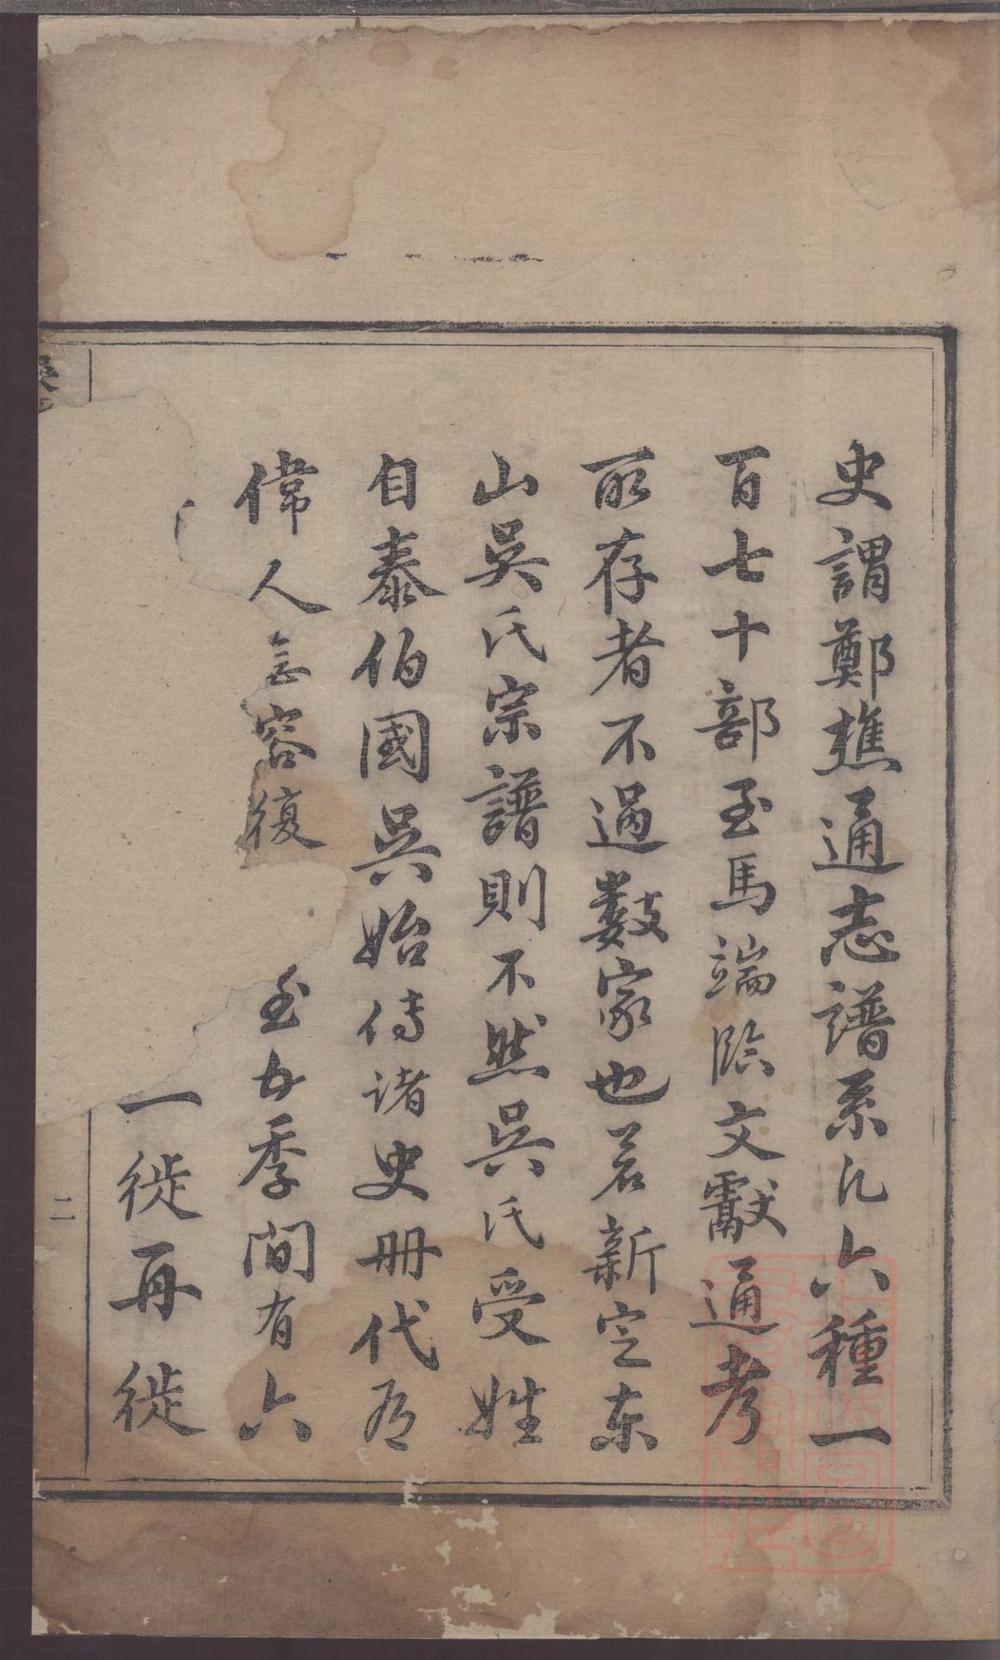 史謂鄭樵通志譜系凡六種一
百七十部至馬端臨文獻通考
所存者不過數家也若新定東
山吳氏宗譜則不然吳氏受姓
自泰伯國吳始传诸史册代有
偉人無容復
至五季間有六
一徙再徙
二